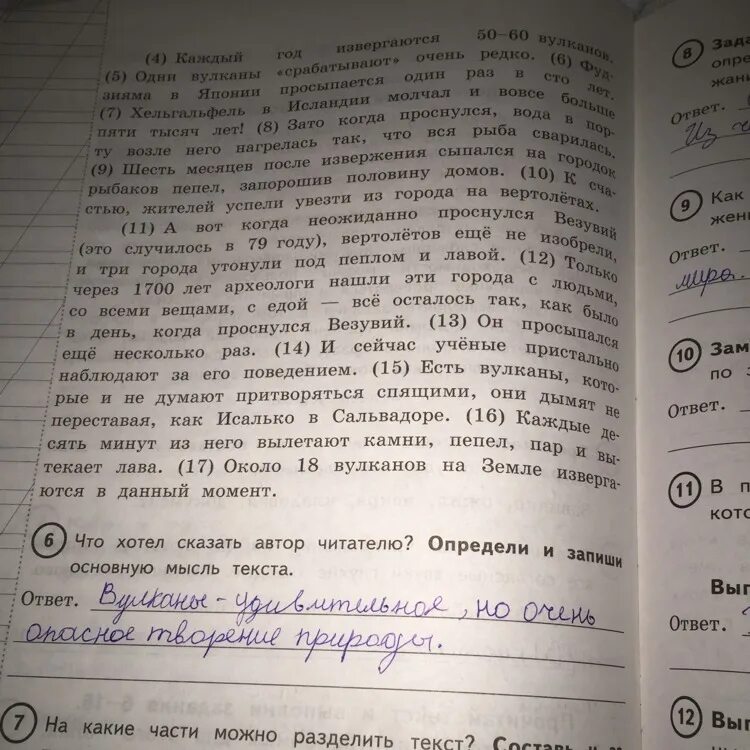 (4) Каждый год извергаются 50–60 вулканов.
(5) Одни вулканы «срабатывают» очень редко. (6) Фуд-
зияма в Японии просыпается один раз в сто лет.
(7) Хельгальфель в Исландии молчал и вовсе больше
пяти тысяч лет! (8) Зато когда проснулся, вода в пор-
ту возле него нагрелась так, что вся рыба сварилась.
(9) Шесть месяцев после извержения сыпался на городок
рыбаков пепел, запорошив половину домов. (10) К сча-
стью, жителей успели увезти из города на вертолётах.
(11) А вот когда неожиданно проснулся Везувий
(это случилось в 79 году), вертолётов ещё не изобрели,
и три города утонули под пеплом и лавой. (12) Только
через 1700 лет археологи нашли эти города с людьми,
со всеми вещами, с едой — всё осталось так, как было
в день, когда проснулся Везувий. (13) Он просыпался
ещё несколько раз. (14) И сейчас учёные пристально
наблюдают за его поведением. (15) Есть вулканы, кото-
рые и не думают притворяться спящими, они дымят не
переставая, как Исалько в Сальвадоре. (16) Каждые де-
сять минут из него вылетают камни, пепел, пар и вы-
текает лава. (17) Около 18 вулканов на Земле изверга-
ются в данный момент.
6 Что хотел сказать автор читателю? Определи и запиши
основную мысль текста.
Ответ. Вулканы - удивительное, но очень
опасное творение природы.
7 На какие части можно разделить текст?
8 Зада
опре
жан
Ответ.
Из
9 Как
жен
Ответ.
мира.
10 Зам
по з
Ответ.
11 В п
кото
Вып
Ответ.
12 Вып